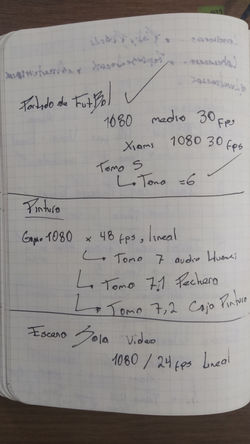 Partido de FutBol
1080 medio 30 fps
Xiami 1080 30 fps
Toma 5
Toma = 6
Pintura
1080 x 48 fps, lineal
Toma 7 audio Huawei
Toma 7.1 Pechera
Toma 7,2 Caja Pintura
Escena Sola Video
1080 / 24 fps Lineal